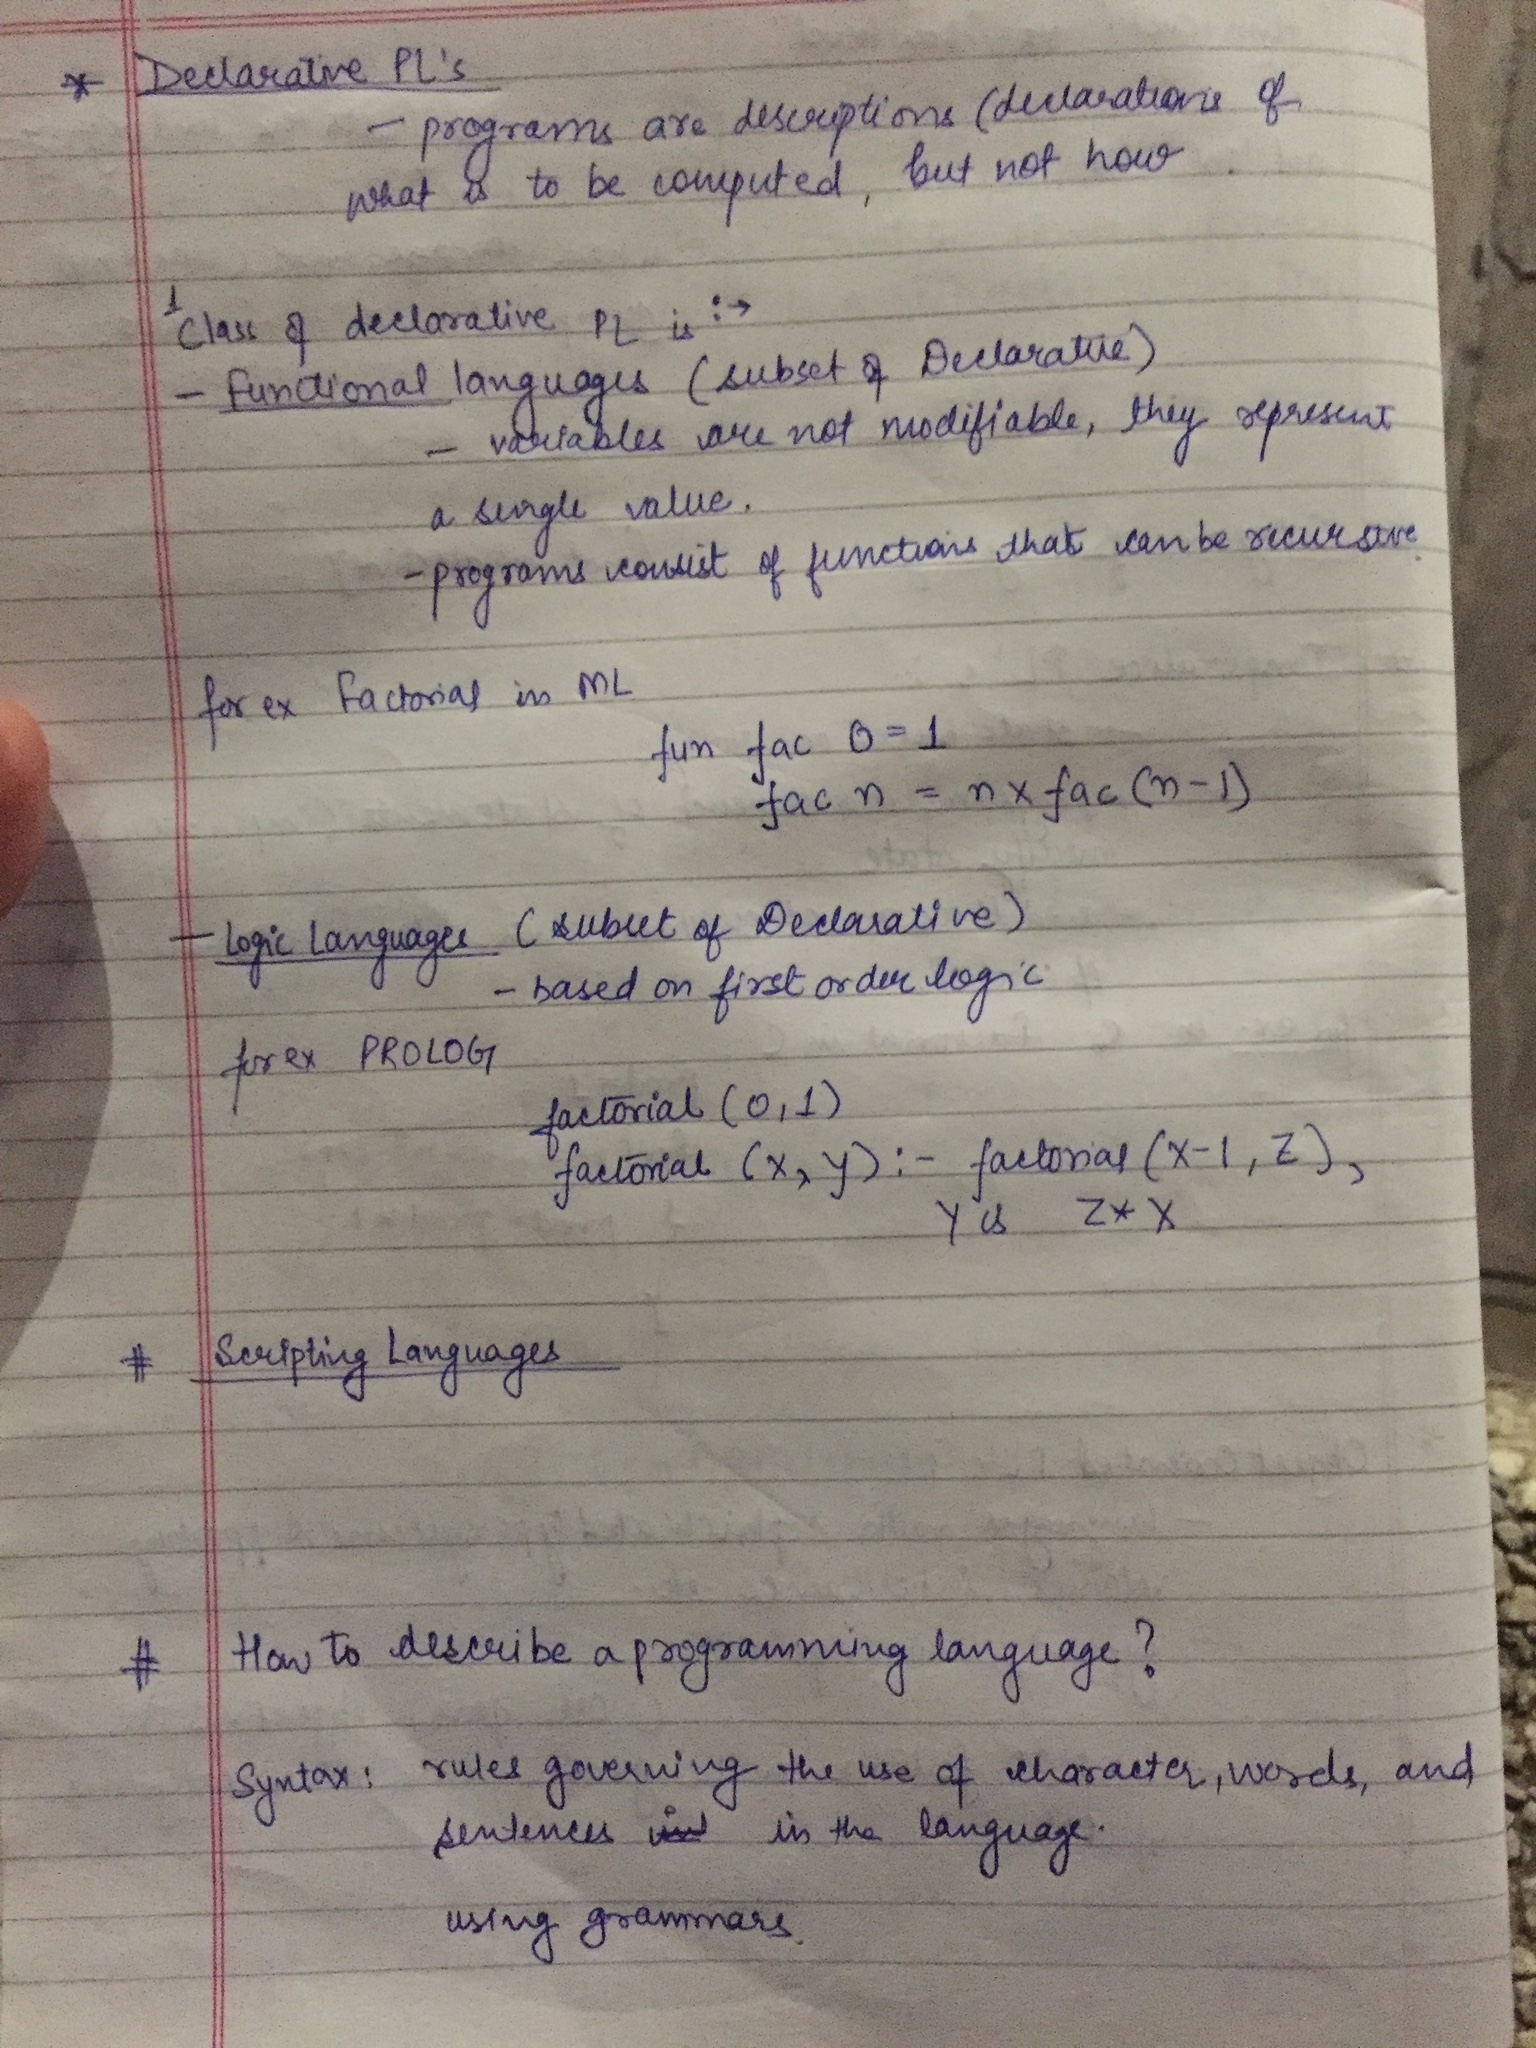 * Declarative PL's
- programs are descriptions (declarations of
what is to be computed, but not how.
1 Class of declarative PL is :→
- Functional languages (subset of Declarative)
- variables are not modifiable, they represent
a single value.
- programs consist of functions that can be recursive.
for ex Factorial in ML
fun fac 0 = 1
fac n = n x fac (n-1)
- Logic Languages (subset of Declarative)
- based on first order logic
for ex PROLOG
factorial (0,1)
factorial (X, Y) :- factorial (X-1, Z),
Y is Z* X
# Scripting Languages
# How to describe a programming language?
Syntax: rules governing the use of character, words, and
sentences in the language.
using grammars.